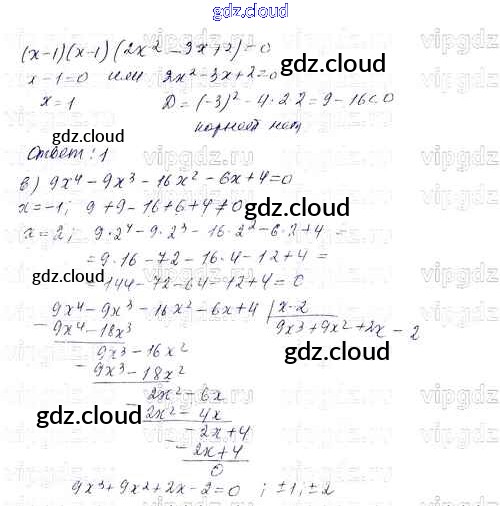 gdz.cloud
(x-1)(x-1)(2x² - 3x+2)=0
x-1=0 или 2x²-3x+2=0
gdz.cloud
x=1 D=(-3)²-4·2·2=9-16<0
корней нет
gdz.cloud
Ответ: 1
в) 9x⁴-9x³-16x²-6x+4=0
x=-1; 9+9-16+6+4≠0
gdz.cloud
x=2; 9·2⁴-9·2³-16·2²-6·2+4=
=9·16-72-16·4-12+4=
gdz.cloud
=144-72-64-12+4=0
gdz.cloud
9x⁴-9x³-16x²-6x+4 | x-2
- 9x⁴-18x³ 9x³+9x²+2x-2
9x³-16x²
- 9x³-18x²
gdz.cloud
2x²-6x
- 2x²-4x
gdz.cloud
-2x+4
- -2x+4
0
gdz.cloud
9x³+9x²+2x-2=0 ; ±1; ±2